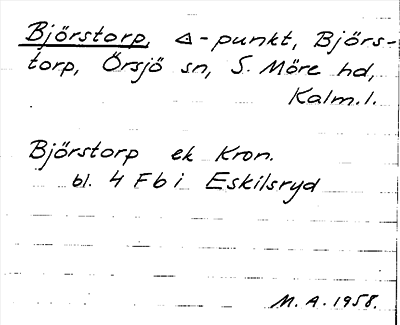 Björstorp, △-punkt, Björs-
torp, Örsjö sn, S. Möre hd,
Kalm.l.
Björstorp ek Kron.
bl. 4 Fbi Eskilsryd
M.A. 1958.